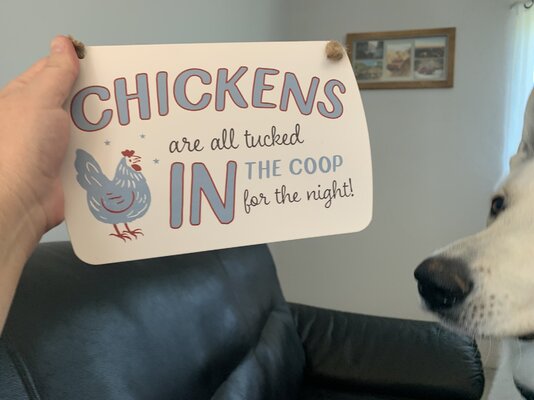 CHICKENS
are all tucked
IN THE COOP
for the night!